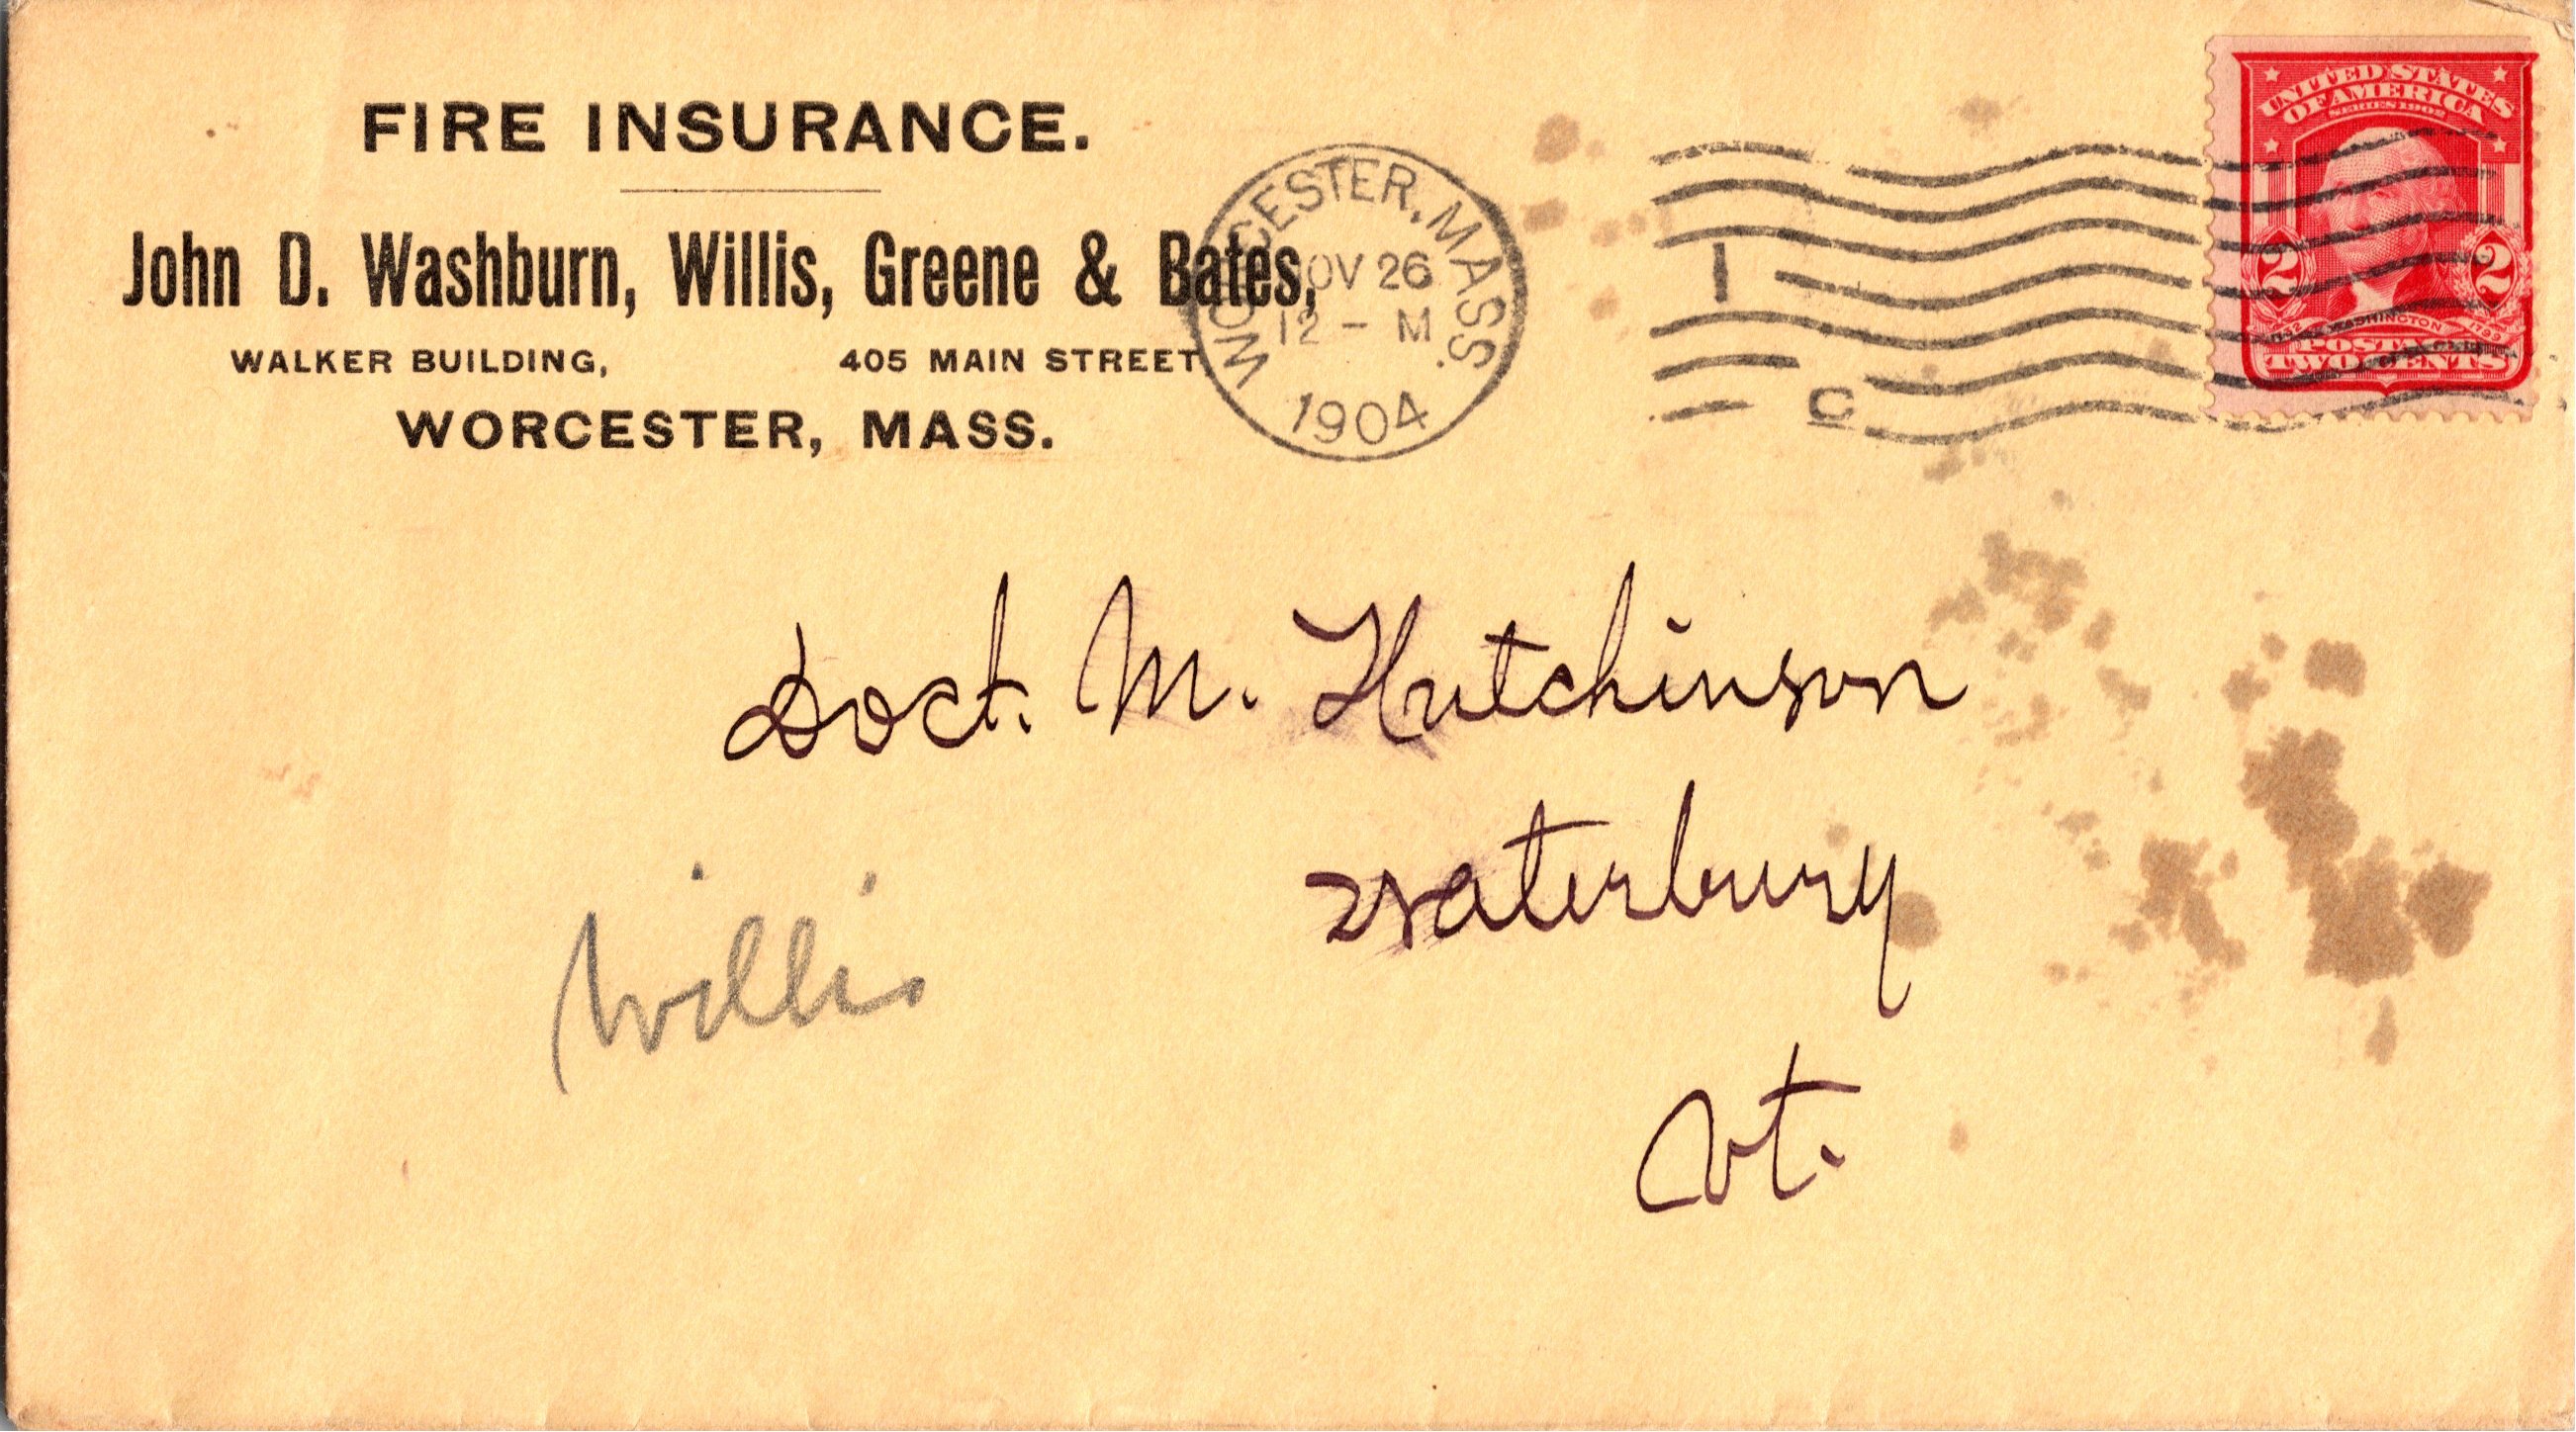 FIRE INSURANCE.
John D. Washburn, Willis, Greene & Bates,
WALKER BUILDING, 405 MAIN STREET
WORCESTER, MASS.
WORCESTER, MASS.
NOV 26
12 - M
1904
1
C
UNITED STATES
OF AMERICA
SERIES 1902
2 2
1732 WASHINGTON 1799
POSTAGE
TWO CENTS
Doct. M. Hutchinson
Waterbury
Vt.
Willis